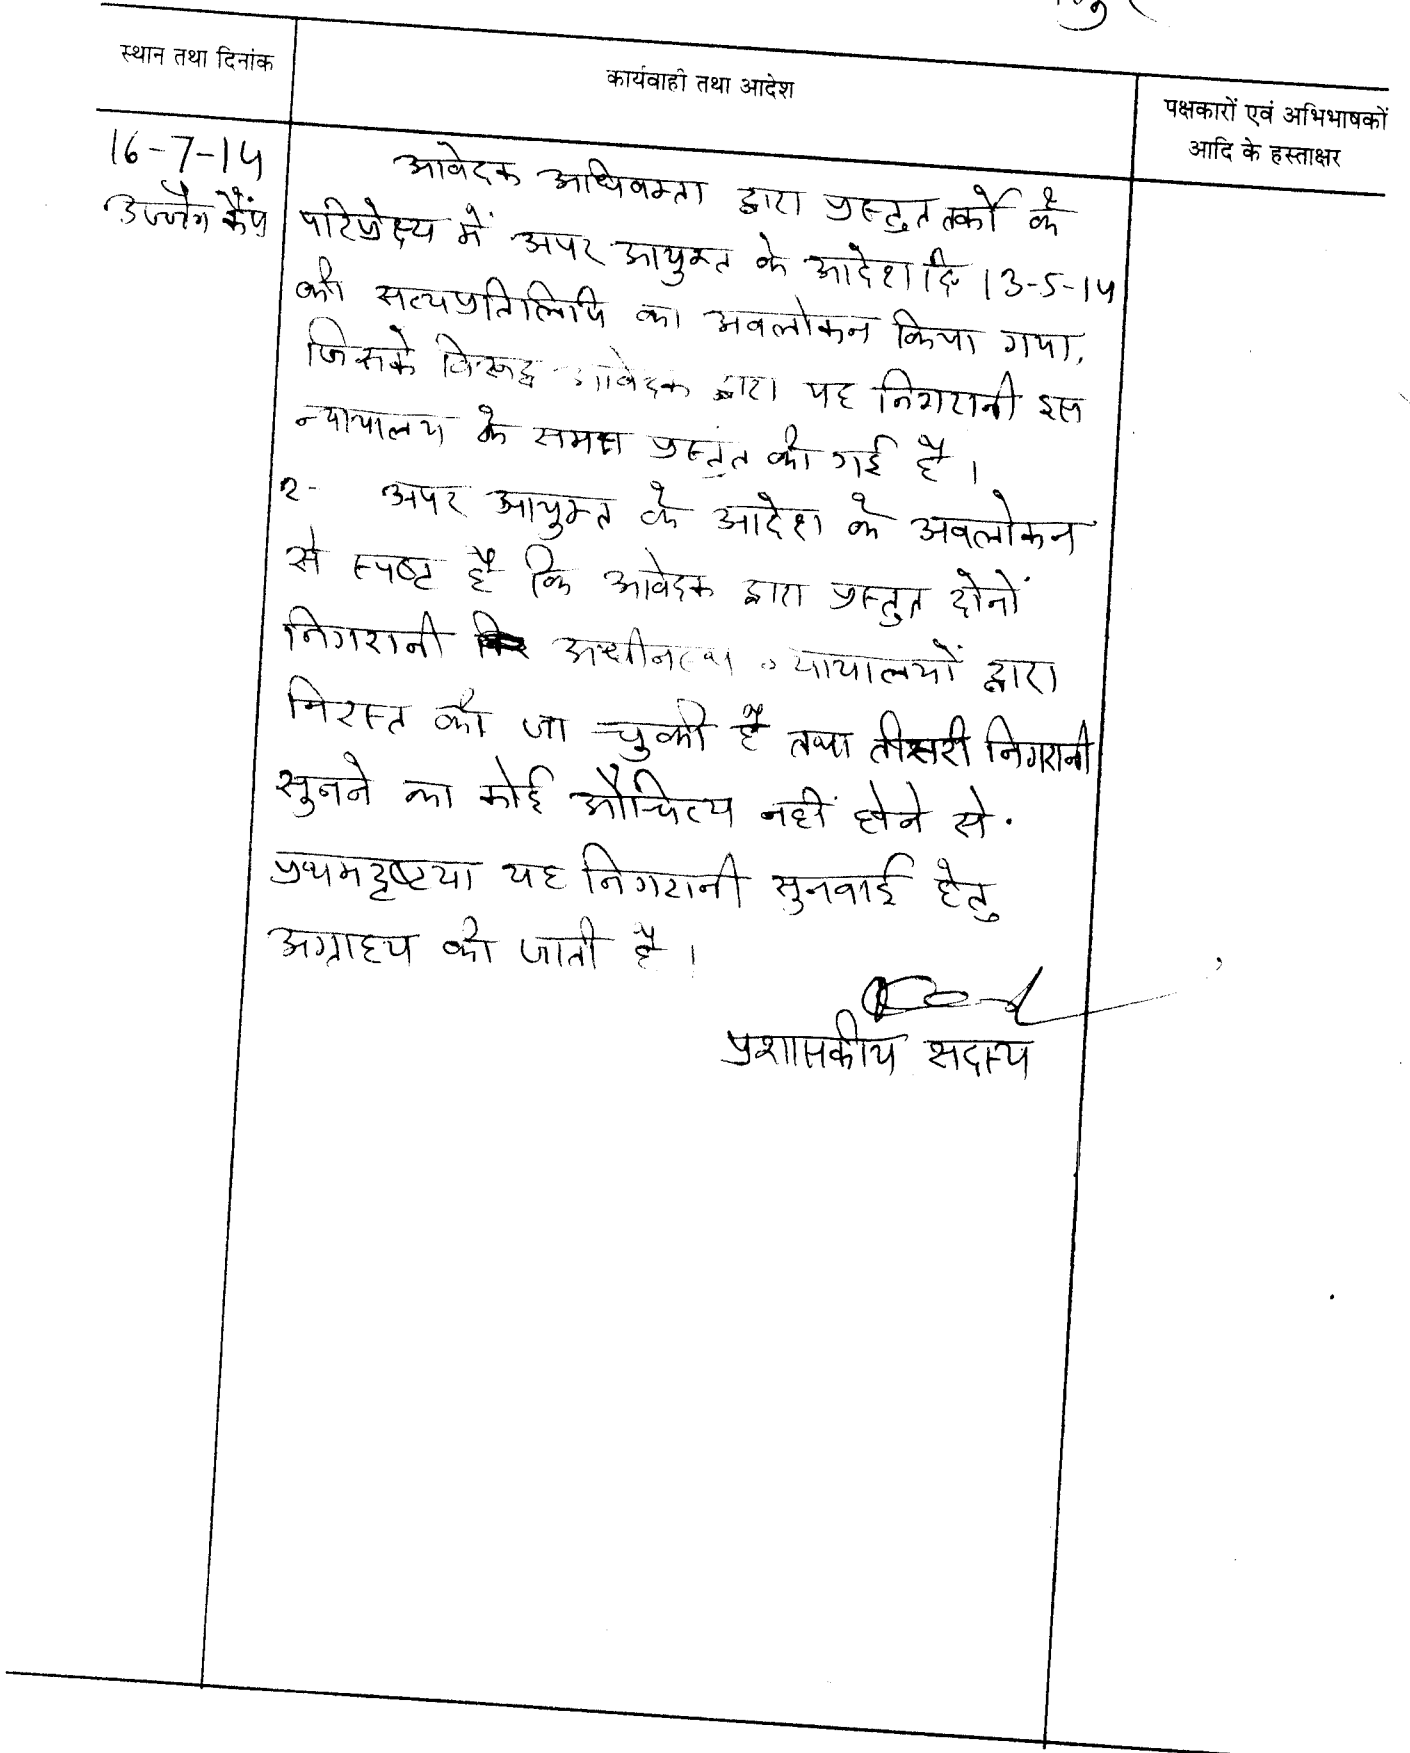 स्थान तथा दिनांक
कार्यवाही तथा आदेश
पक्षकारों एवं अभिभाषकों
आदि के हस्ताक्षर
16-7-14
उज्जैन कैंप
आवेदक अधिवक्ता द्वारा प्रस्तुत तर्कों के
परिप्रेक्ष्य में अपर आयुक्त के आदेश दि 13-5-14
की सत्यप्रतिलिपि का अवलोकन किया गया,
जिसके विरूद्ध आवेदक द्वारा यह निगरानी इस
न्यायालय के समक्ष प्रस्तुत की गई है।
2- अपर आयुक्त के आदेश के अवलोकन
से स्पष्ट है कि आवेदक द्वारा प्रस्तुत दोनों
निगरानी अधीनस्थ न्यायालयों द्वारा
निरस्त की जा चुकी है तथा तीसरी निगरानी
सुनने का कोई औचित्य नहीं होने से.
प्रथमदृष्टया यह निगरानी सुनवाई हेतु
अग्राह्य की जाती है।
प्रशासकीय सदस्य